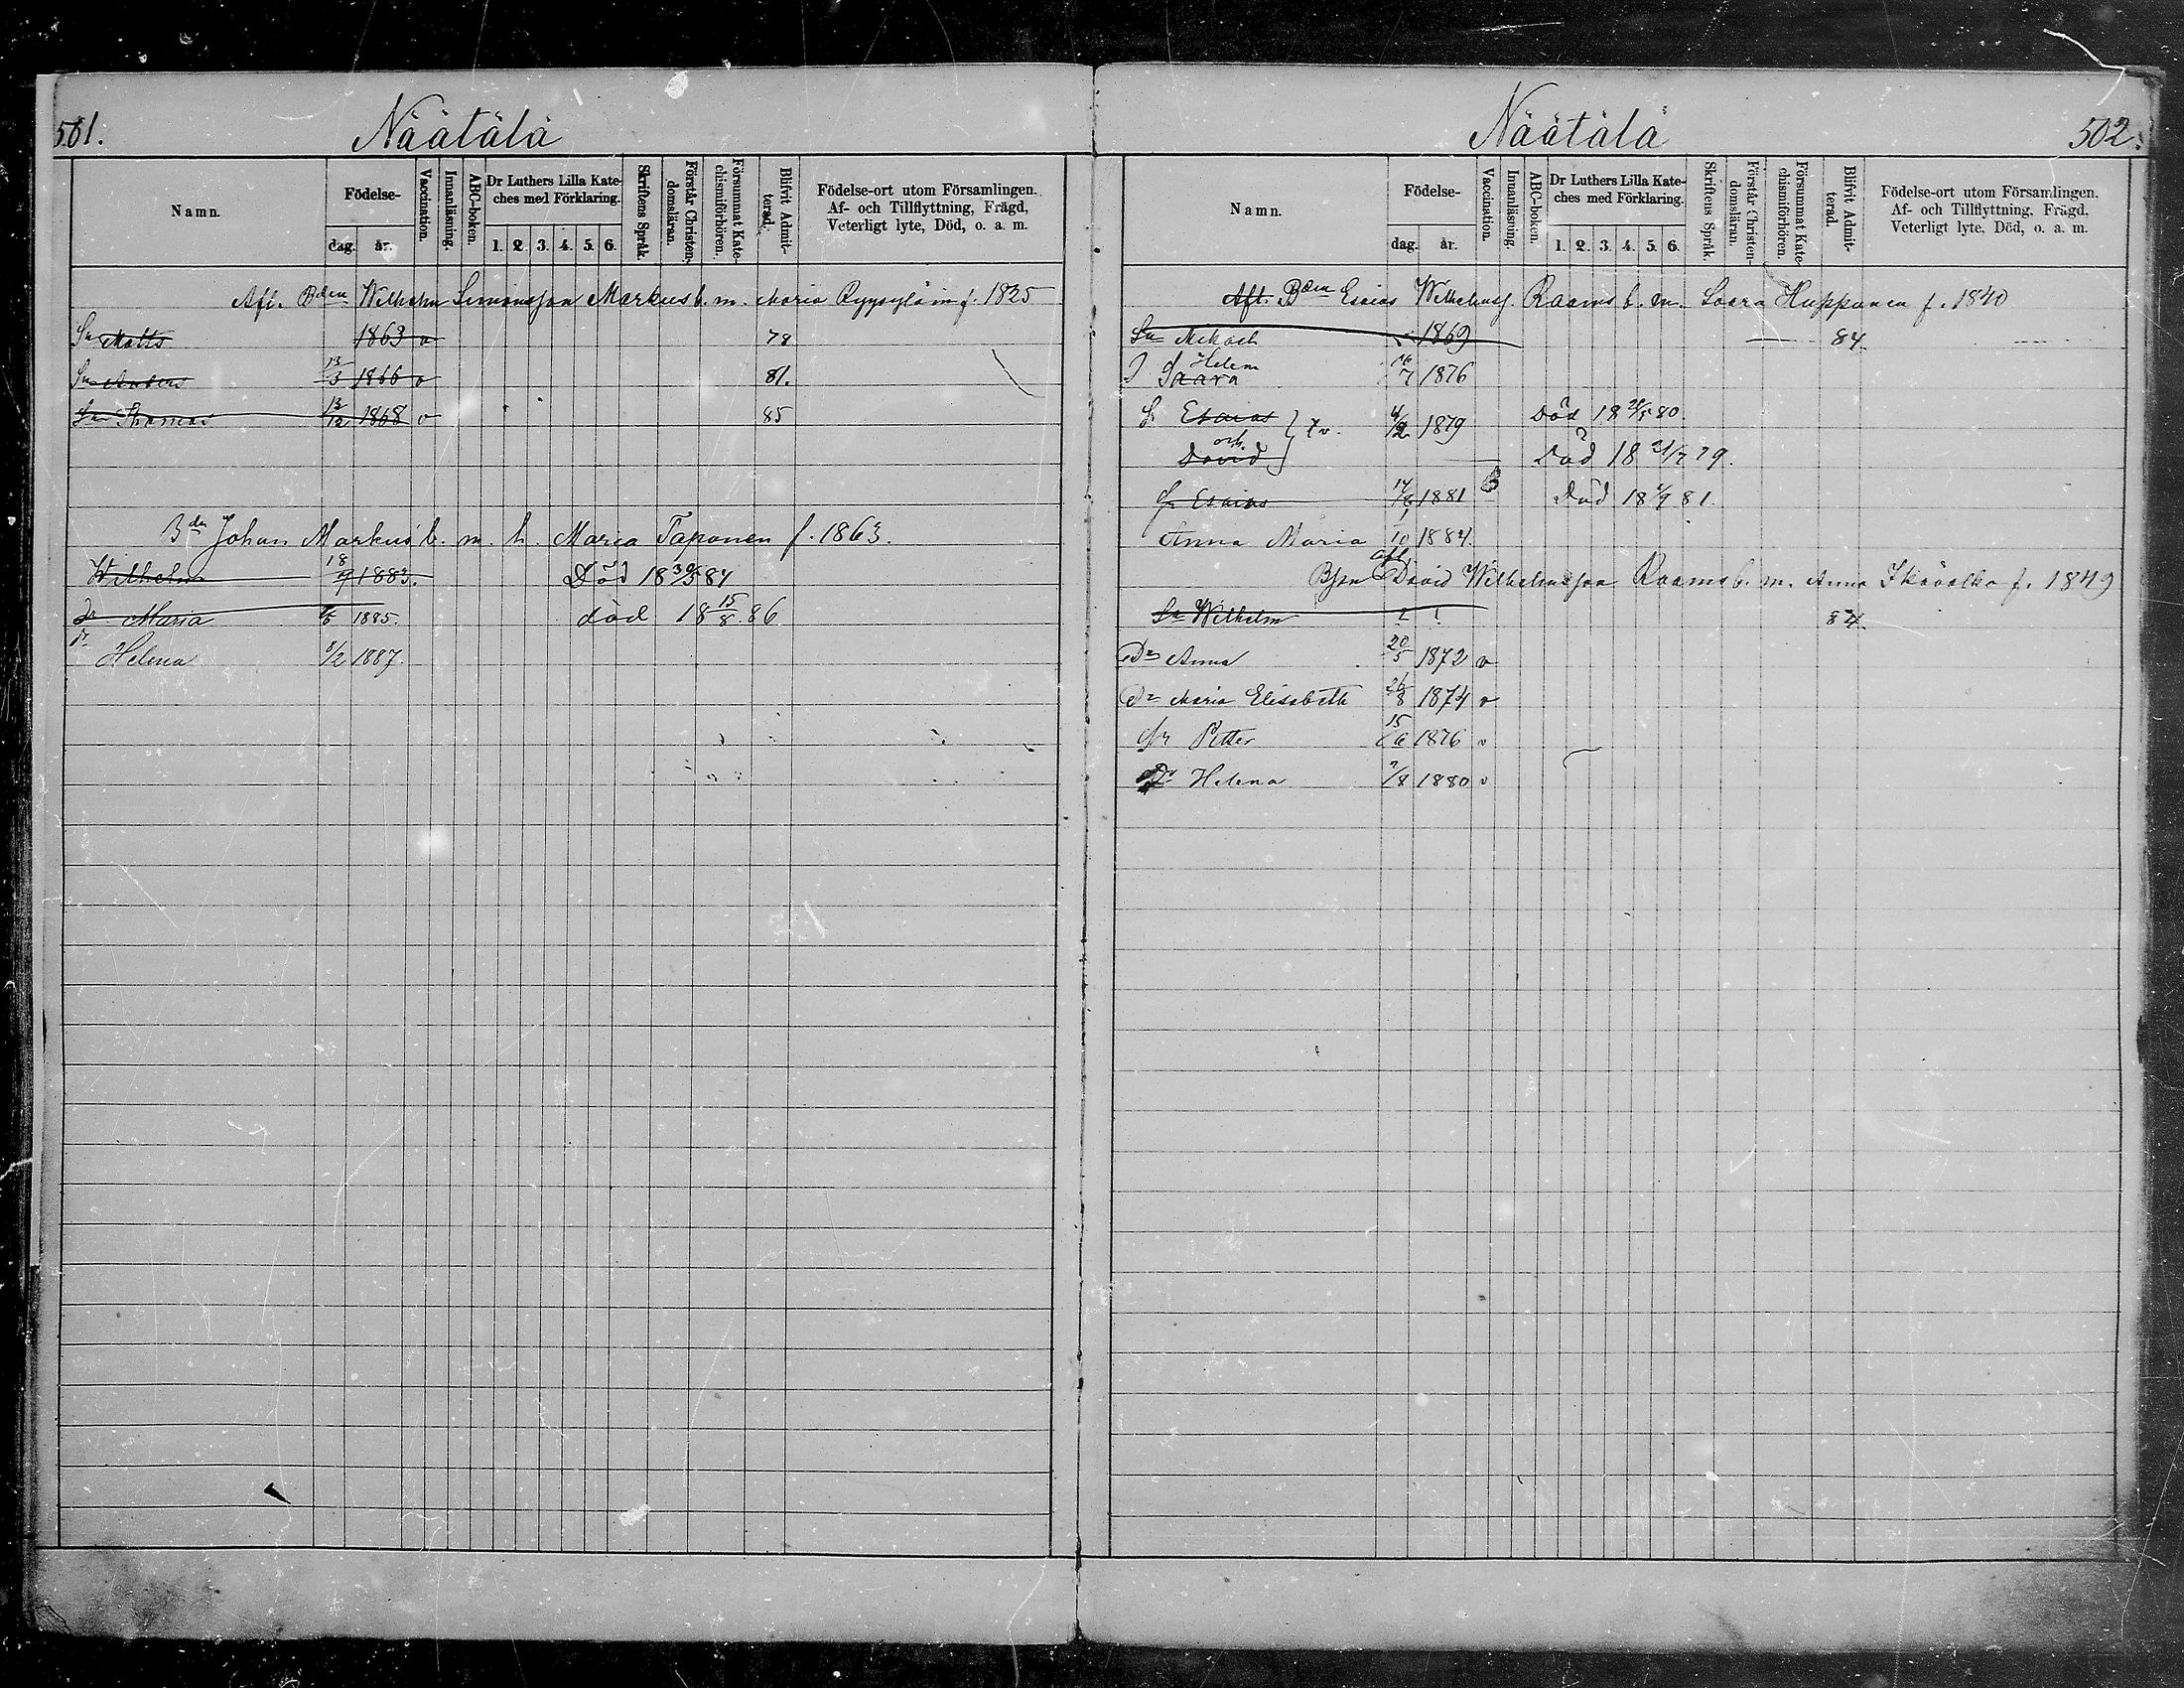 501.
Näätälä
Namn.
Födelse-
dag.
år.
Vaccination.
Innanläsning.
ABC-boken.
Dr Luthers Lilla Kate-
ches med Förklaring.
1. 2. 3. 4. 5. 6.
Skriftens Språk.
Förstår Christen-
domsläran.
Försummat Kate-
chismiförhören.
Blifvit Admit-
terad.
Födelse-ort utom Församlingen.
Af- och Tillflyttning, Frägd,
Veterligt lyte, Död, o. a. m.
Afl. Bden Wilhelm Simonsson Markus b. m. Maria f. 1825
Sn Matts 1863 v 78
Sn Anders 13/3 1866 v 81.
Sn Thomas 13/12 1868 v 85
Bdn Johan Markus b. m. h. Maria Taponen f. 1863.
Wilhelm 18/9 1883. Död 18 30/5 84
Dr Maria 1885. död 18 15/8 86
Dr Helena 8/2 1887.
Näätälä
502.
Namn.
Födelse-
dag.
år.
Vaccination.
Innanläsning.
ABC-boken.
Dr Luthers Lilla Kate-
ches med Förklaring.
1. 2. 3. 4. 5. 6.
Skriftens Språk.
Förstår Christen-
domsläran.
Försummat Kate-
chismiförhören.
Blifvit Admit-
terad.
Födelse-ort utom Församlingen.
Af- och Tillflyttning, Frägd,
Veterligt lyte, Död, o. a. m.
Aft. Bden Esaias Wilhelmss. Raams b. m. Saara Huppanen f. 1840
Sn Mikaeh 1869 84
Helena
D Saara 16/7 1876
S Esaias 4/2 1879 Död 18 80.
och
David Död 18 21/7 79.
Sn Esaias 14/8 1881 Död 18 81.
Anna Maria 1/10 1884.
afl.
Bssn David Wilhelmsson Raams b. m. Anna Ikävalko f. 1849
Sn Wilhelm 84.
Dr Anna 20/5 1872 v
Dr Maria Elisabeth 26/8 1874 v
Sn Petter 15/6 1876 v
Dr Helena 7/8 1880 v